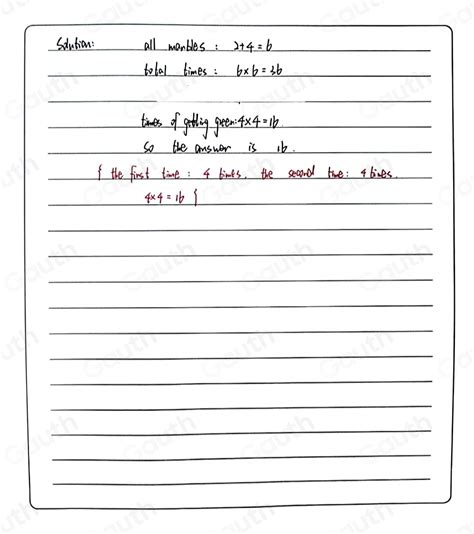 Solution: all marbles : 2+4=6
total times : 6×6=36
times of getting green: 4×4=16.
So the answer is 16.
{ the first time : 4 times, the second time: 4 times.
4×4=16 }